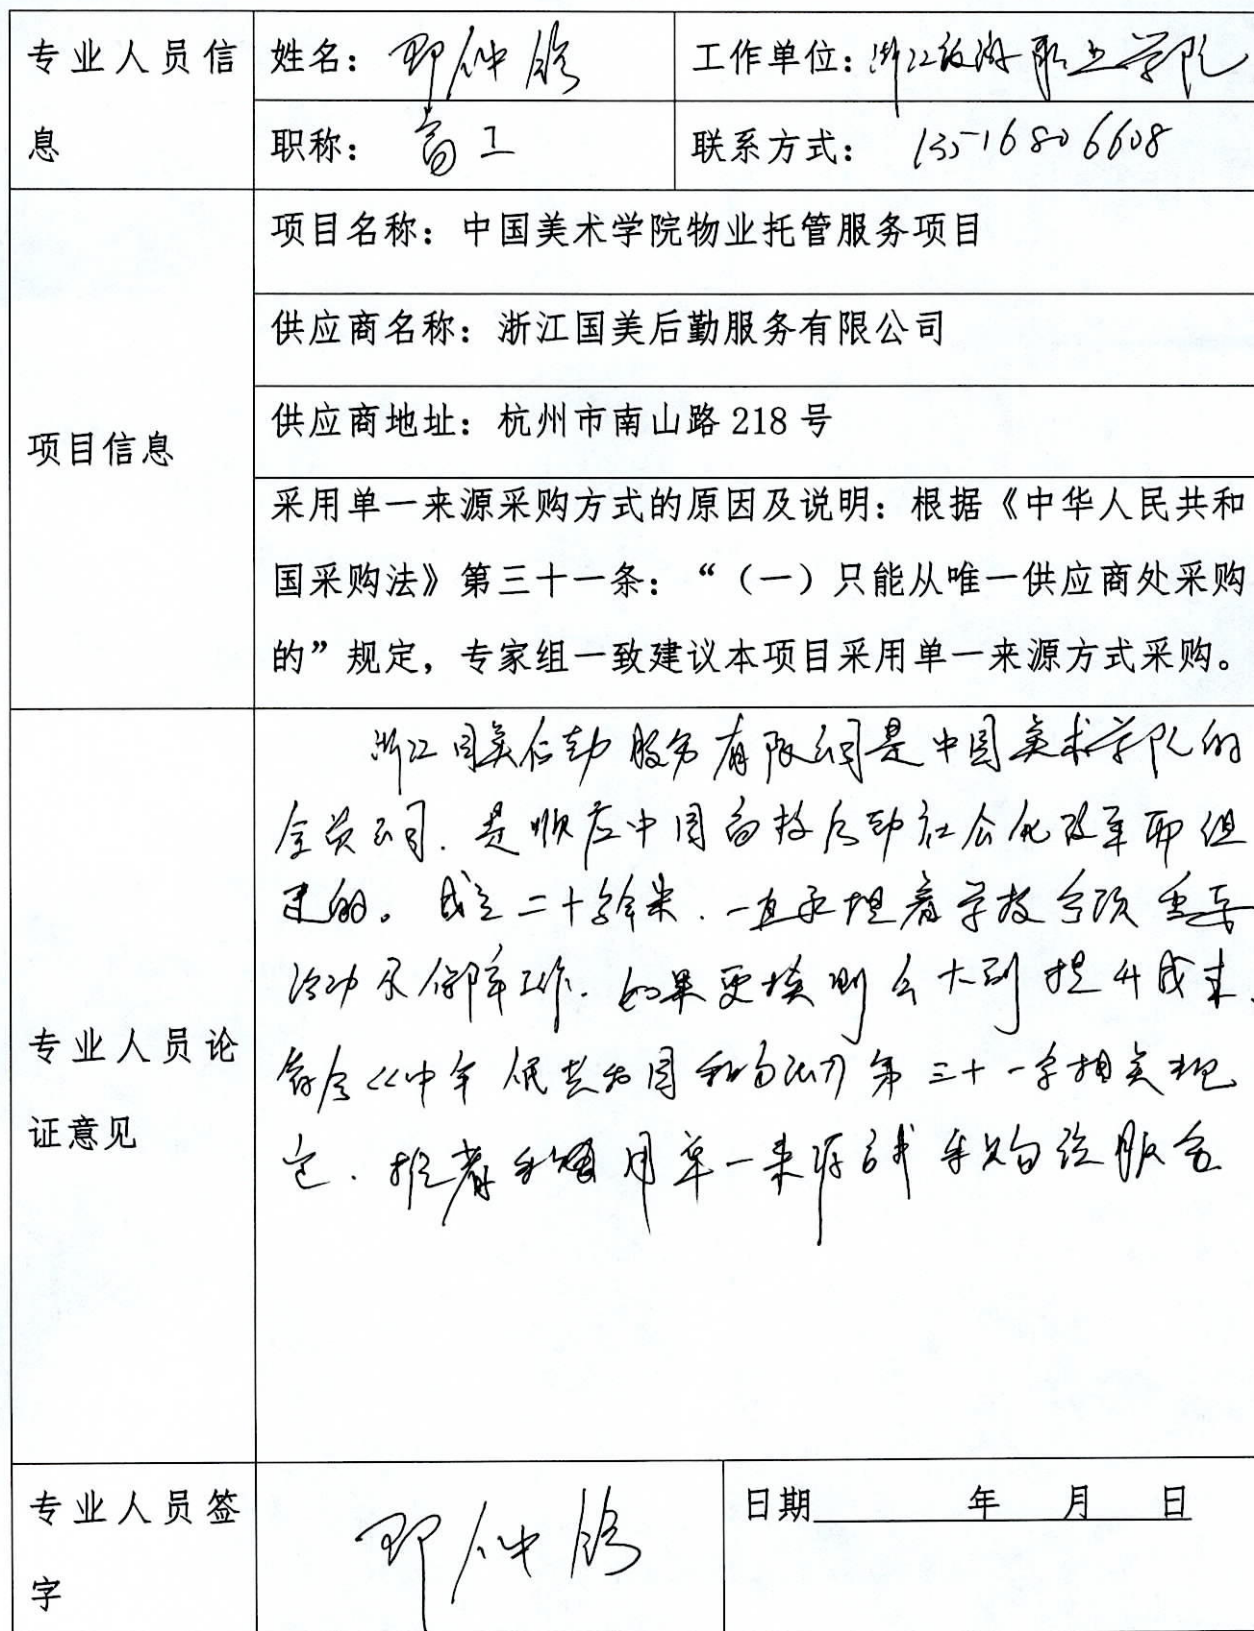 专业人员信息
姓名：
工作单位：浙江旅游职业学院
职称：高工
联系方式：13516806608
项目信息
项目名称：中国美术学院物业托管服务项目
供应商名称：浙江国美后勤服务有限公司
供应商地址：杭州市南山路 218 号
采用单一来源采购方式的原因及说明：根据《中华人民共和
国采购法》第三十一条：“（一）只能从唯一供应商处采购
的”规定，专家组一致建议本项目采用单一来源方式采购。
专业人员论证意见
浙江国美后勤服务有限公司是中国美术学院的
全资公司．是顺应中国高校后勤社会化改革而组
建的。成立二十余年来．一直承担着学校各项重要
活动及保障工作．如果更换则会大副提升成本．
符合《中华人民共和国采购法》第三十一条相关规
定．推荐采用单一来源方式采购该服务
专业人员签字
日期 年 月 日